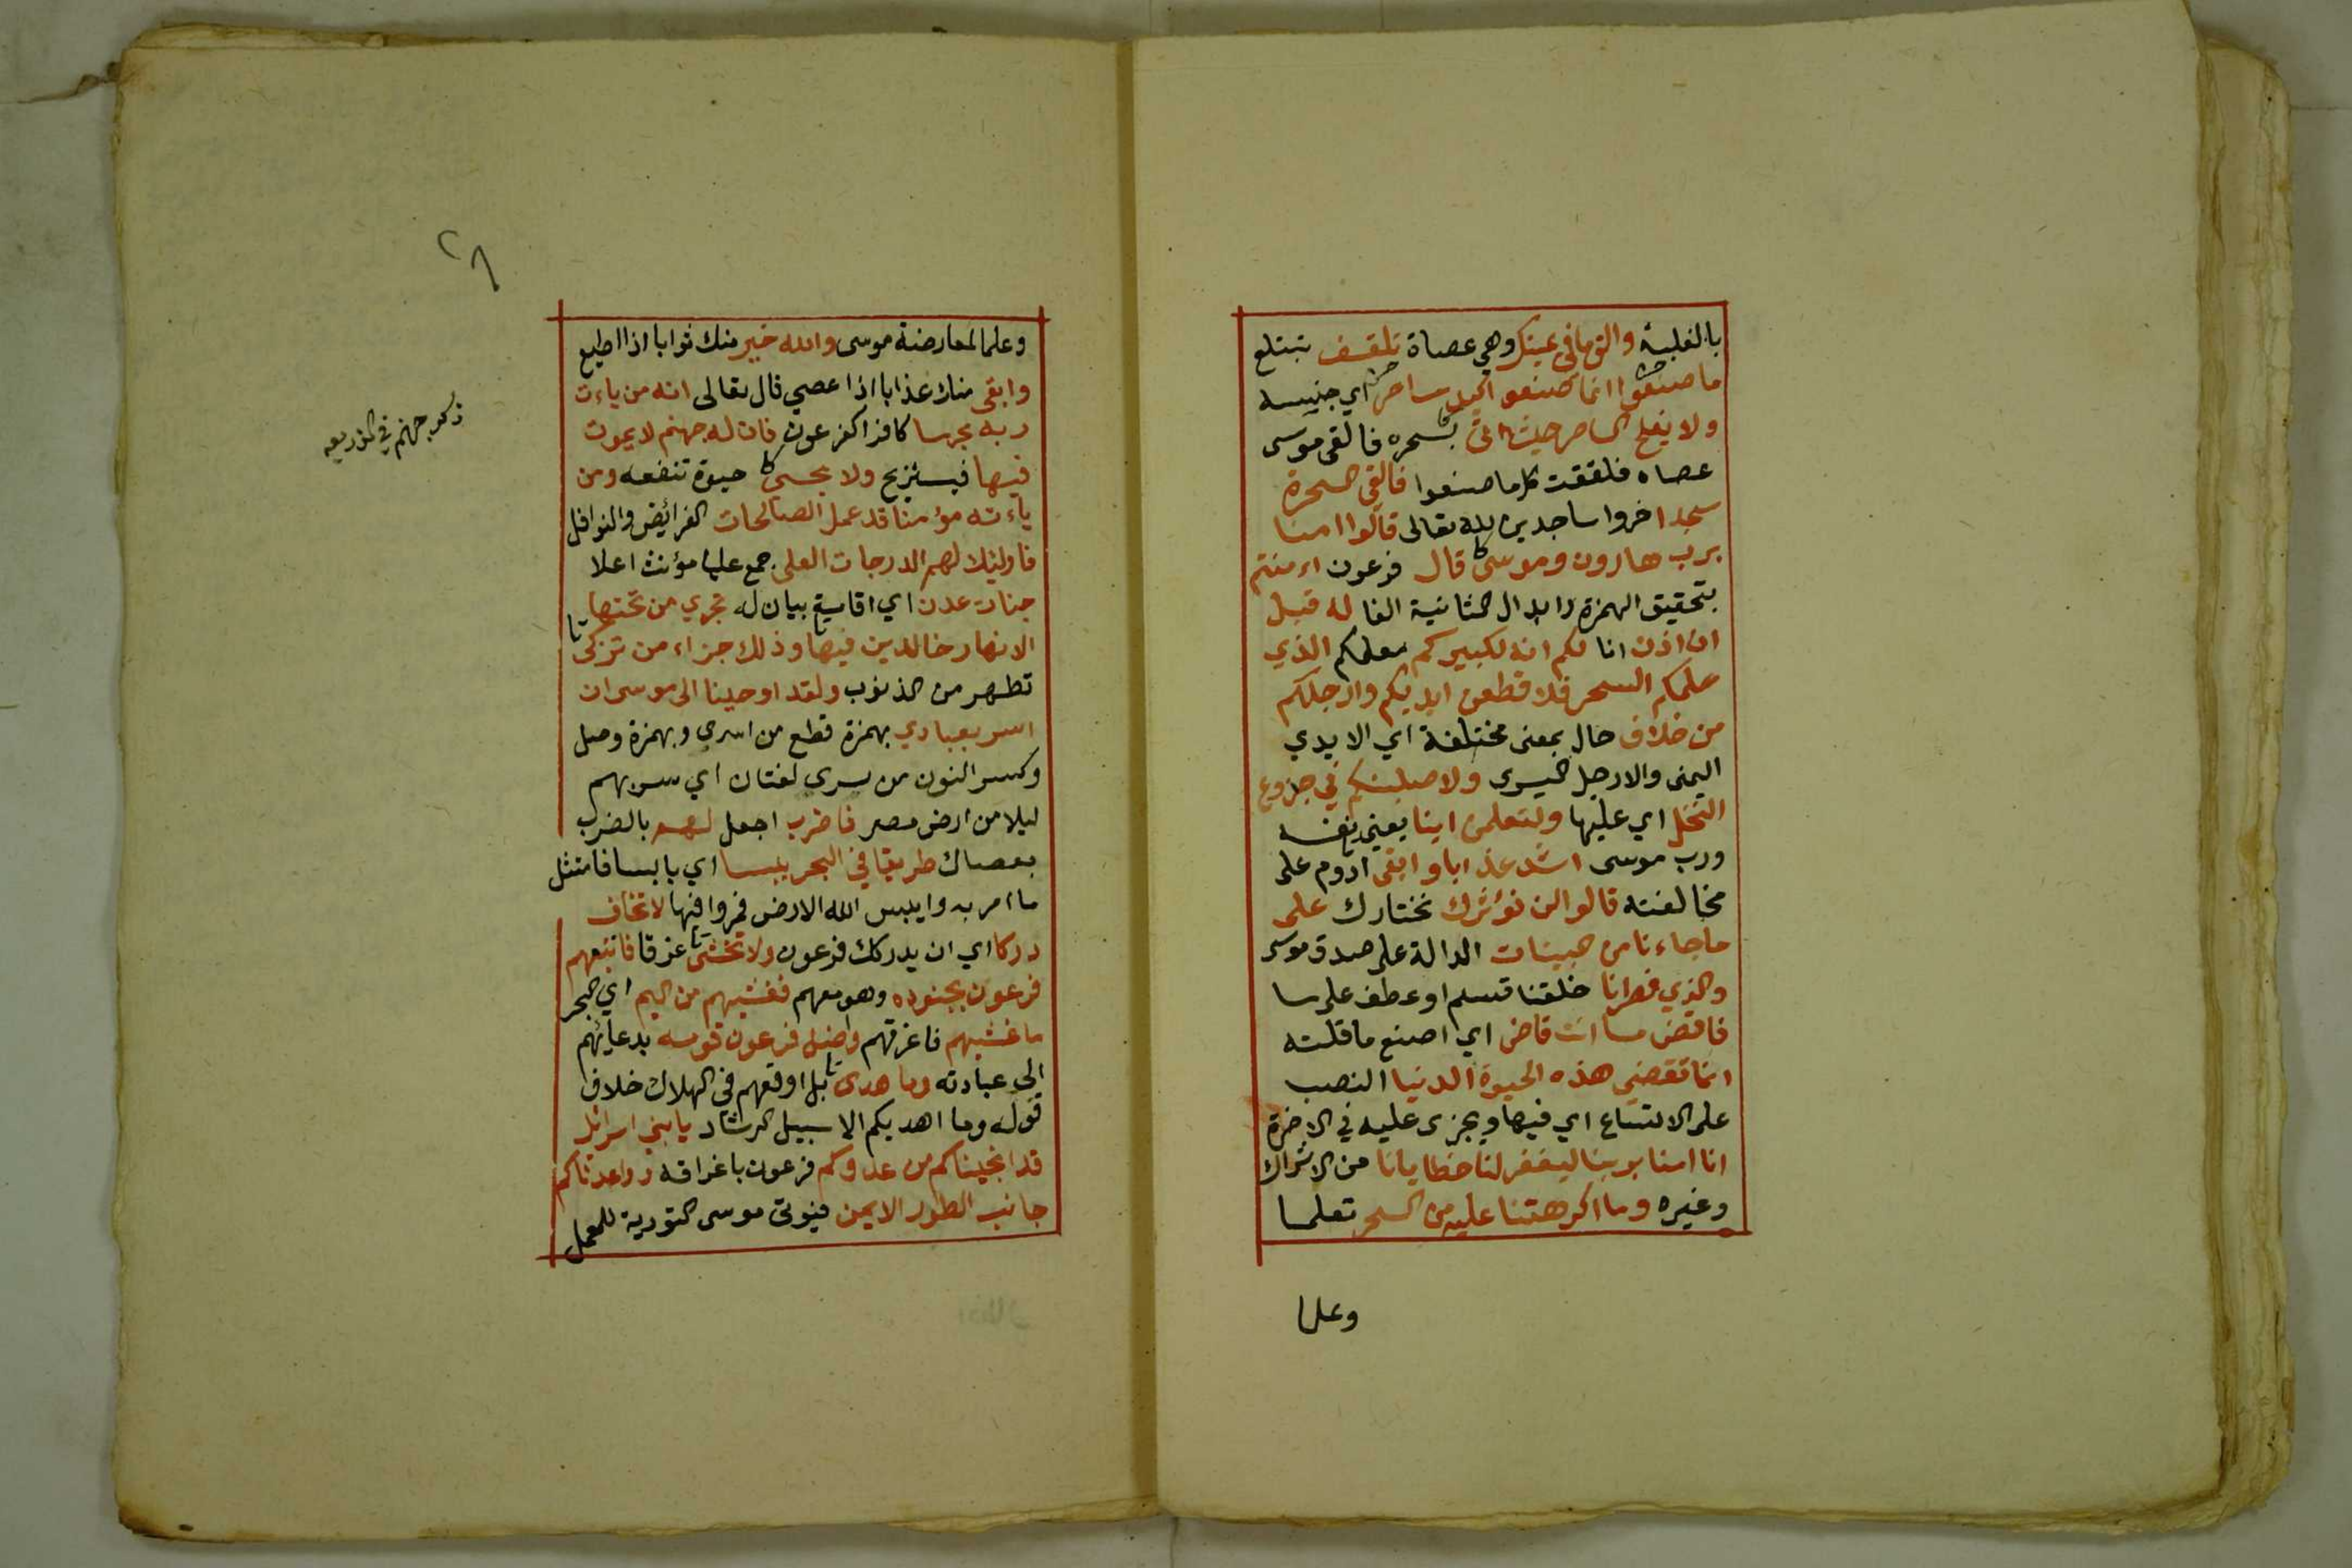 بالغلبة والق ما في يمينك وهي عصاة تلقف تبتلع
ما صنعوا انما صنعوا كيد ساحر اي جنسه
ولا يفلح الساحر حيث اتى بسحره فالقى موسى
عصاه فلقفت كل ما صنعوا فالقى السحرة
سجدا خروا ساجدين لله تعالى قالوا امنا
برب هارون وموسى قال فرعون اءمنتم
بتحقيق الهمزة وابدال الثانية الفا له قبل
ان اذن انا لكم انه لكبيركم معلمكم الذي
علمكم السحر فلاقطعن ايديكم وارجلكم
من خلاف حال بمعنى مختلفة اي الايدي
اليمنى والارجل اليسرى ولاصلبنكم في جزوع
النخل اي عليها ولتعلمن اينا يعني نفسه
ورب موسى اشد عذابا وابقى ادوم على
مخالفته قالوا لن نؤثرك نختارك على
ما جاءنا من البينات الدالة على صدق موسى
والذي فطرنا خلقنا قسم او عطف على ما
فاقض ما انت قاض اي اصنع ما قلته
انما تقضي هذه الحيوة الدنيا النصب
على الاتساع اي فيها ويجزى عليه في الاخرة
انا امنا بربنا ليغفر لنا خطايانا من الاشراك
وغيره وما اكرهتنا عليه من السحر تعلما
وعلما
٢٨
وعلما لمعارضة موسى والله خير منك ثوابا اذا اطيع
وابقى منك عذابا اذا عصي قال تعالى انه من ياءت
ربه مجرما كافرا كفرعون فان له جهنم لا يموت
فيها فيستريح ولا يحيى حيوة تنفعه ومن
ياءته مؤمنا قد عمل الصالحات الفرائض والنوافل
فاولئك لهم الدرجات العلى جمع عليا مؤنث اعلا
جنات عدن اي اقامة بيان له تجري من تحتها
الانهار خالدين فيها وذلك جزاء من تزكى
تطهر من الذنوب ولقد اوحينا الى موسى ان
اسر بعبادي بهمزة قطع من اسرى وبهمزة وصل
وكسر النون من سرى لغتان اي سر بهم
ليلا من ارض مصر فاضرب اجعل لهم بالضرب
بعصاك طريقا في البحر يبسا اي يابسا فامتثل
ما امر به وايبس الله الارض فمروا فيها لا تخاف
دركا اي ان يدركك فرعون ولا تخشى غرقا فاتبعهم
فرعون بجنوده وهو معهم فغشيهم من اليم اي البحر
ما غشيهم فاغرقهم واضل فرعون قومه بدعائهم
الى عبادته وما هدى بل اوقعهم في الهلاك خلاف
قوله وما اهديكم الا سبيل الرشاد يا بني اسرائل
قد انجيناكم من عدوكم فرعون باغراقه وواعدناكم
جانب الطور الايمن فيؤتى موسى التورية للعمل
ذكر جهنم في